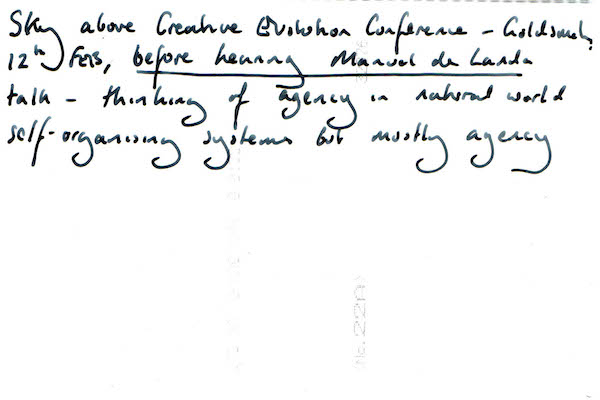 Sky above Creative Evolution Conference - Goldsmiths,
12th FEB, before hearing Manuel de Landa
talk - thinking of agency in natural world
self-organising systems but mostly agency
(No. 22A)